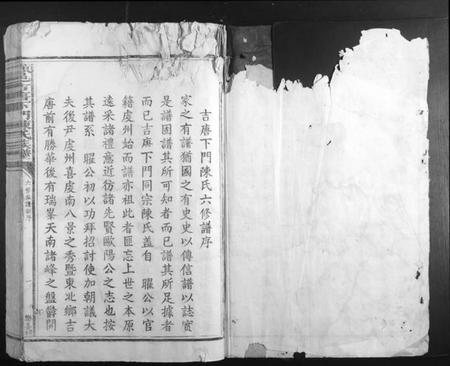 吉廂下門陳氏六修譜序
家之有譜猶國之有史史以傳信譜以誌實
是譜因譜其所可知者而已譜其所足據者
而已吉廂下門同宗陳氏蓋自 朢公以官
籍虔州始而譜亦祖此者匪忘上世之本原
遠采諸禮意近彷諸先賢歐陽公之志也按
其譜系 朢公初以功拜招討使加朝議大
夫後尹虔州喜虔南八景之秀暨東北鄉吉
廂前有勝華後有瑞峯天南諸峰之盤欝開